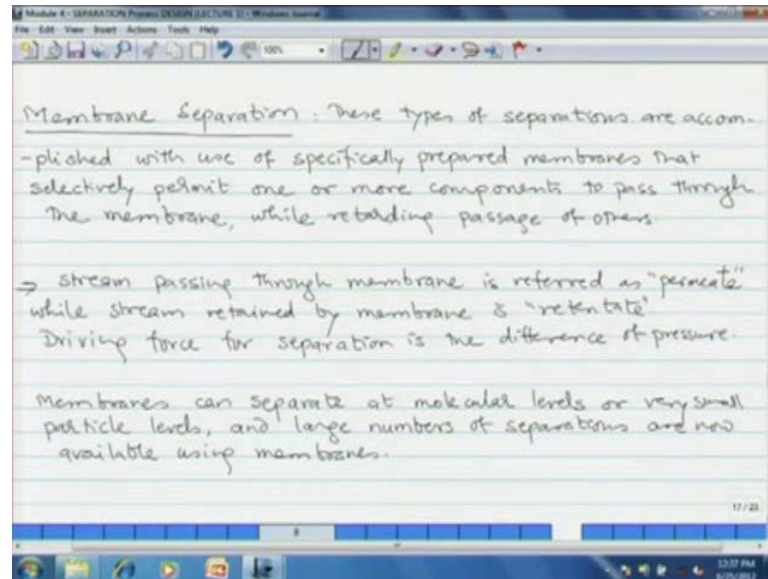 Module 4 - SEPARATION Process DESIGN (LECTURE 1) - Windows Journal
File Edit View Insert Actions Tools Help
100%
Membrane Separation : These types of separations are accom-
-plished with use of specifically prepared membranes that
selectively permit one or more components to pass through
the membrane, while retarding passage of others
→ stream passing through membrane is referred as "permeate"
while stream retained by membrane is "retentate"
Driving force for separation is the difference of pressure.
Membranes can separate at molecular levels or very small
particle levels, and large numbers of separations are now
available using membranes.
17 / 23
9
12:37 PM
6/25/2012